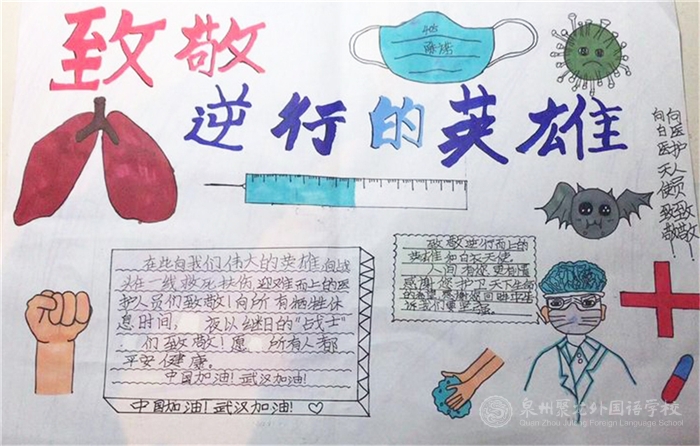 致敬
逆行的英雄
向医护人员致敬!
向白衣天使致敬!
在此向我们伟大的英雄,向战
斗在一线救死扶伤,迎难而上的医
护人员们致敬!向所有牺牲休
息时间, 夜以继日的"战士"
们致敬!愿 所有人都
平安健康。
中国加油!武汉加油!
中国加油!武汉加油!
致敬逆行而上的
英雄和白衣天使
人间有您更
感谢您护卫天下
泉州聚龙外国语学校
Quan Zhou Julong Foreign Language School